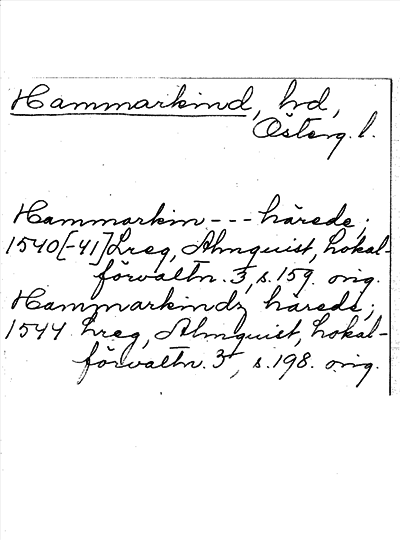 Hammarkind, hd,
Österg. l.
Hammarkin--- härede;
1540[-41] Lreg, Almquist, Lokal-
förvaltn. 3, s. 159. orig.
Hammarkindz härede;
1544 Lreg, Almquist, Lokal-
förvaltn. 3, s. 198. orig.